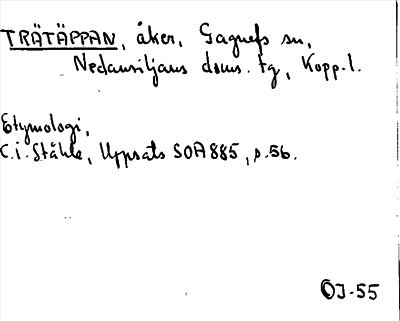 TRÄTÄPPAN, åker, Gagnefs sn,
Nedansiljans doms. tg, Kopp. l.
Etymologi,
C.I. Ståhle, Uppsats SOA 885, s. 56.
OJ-55